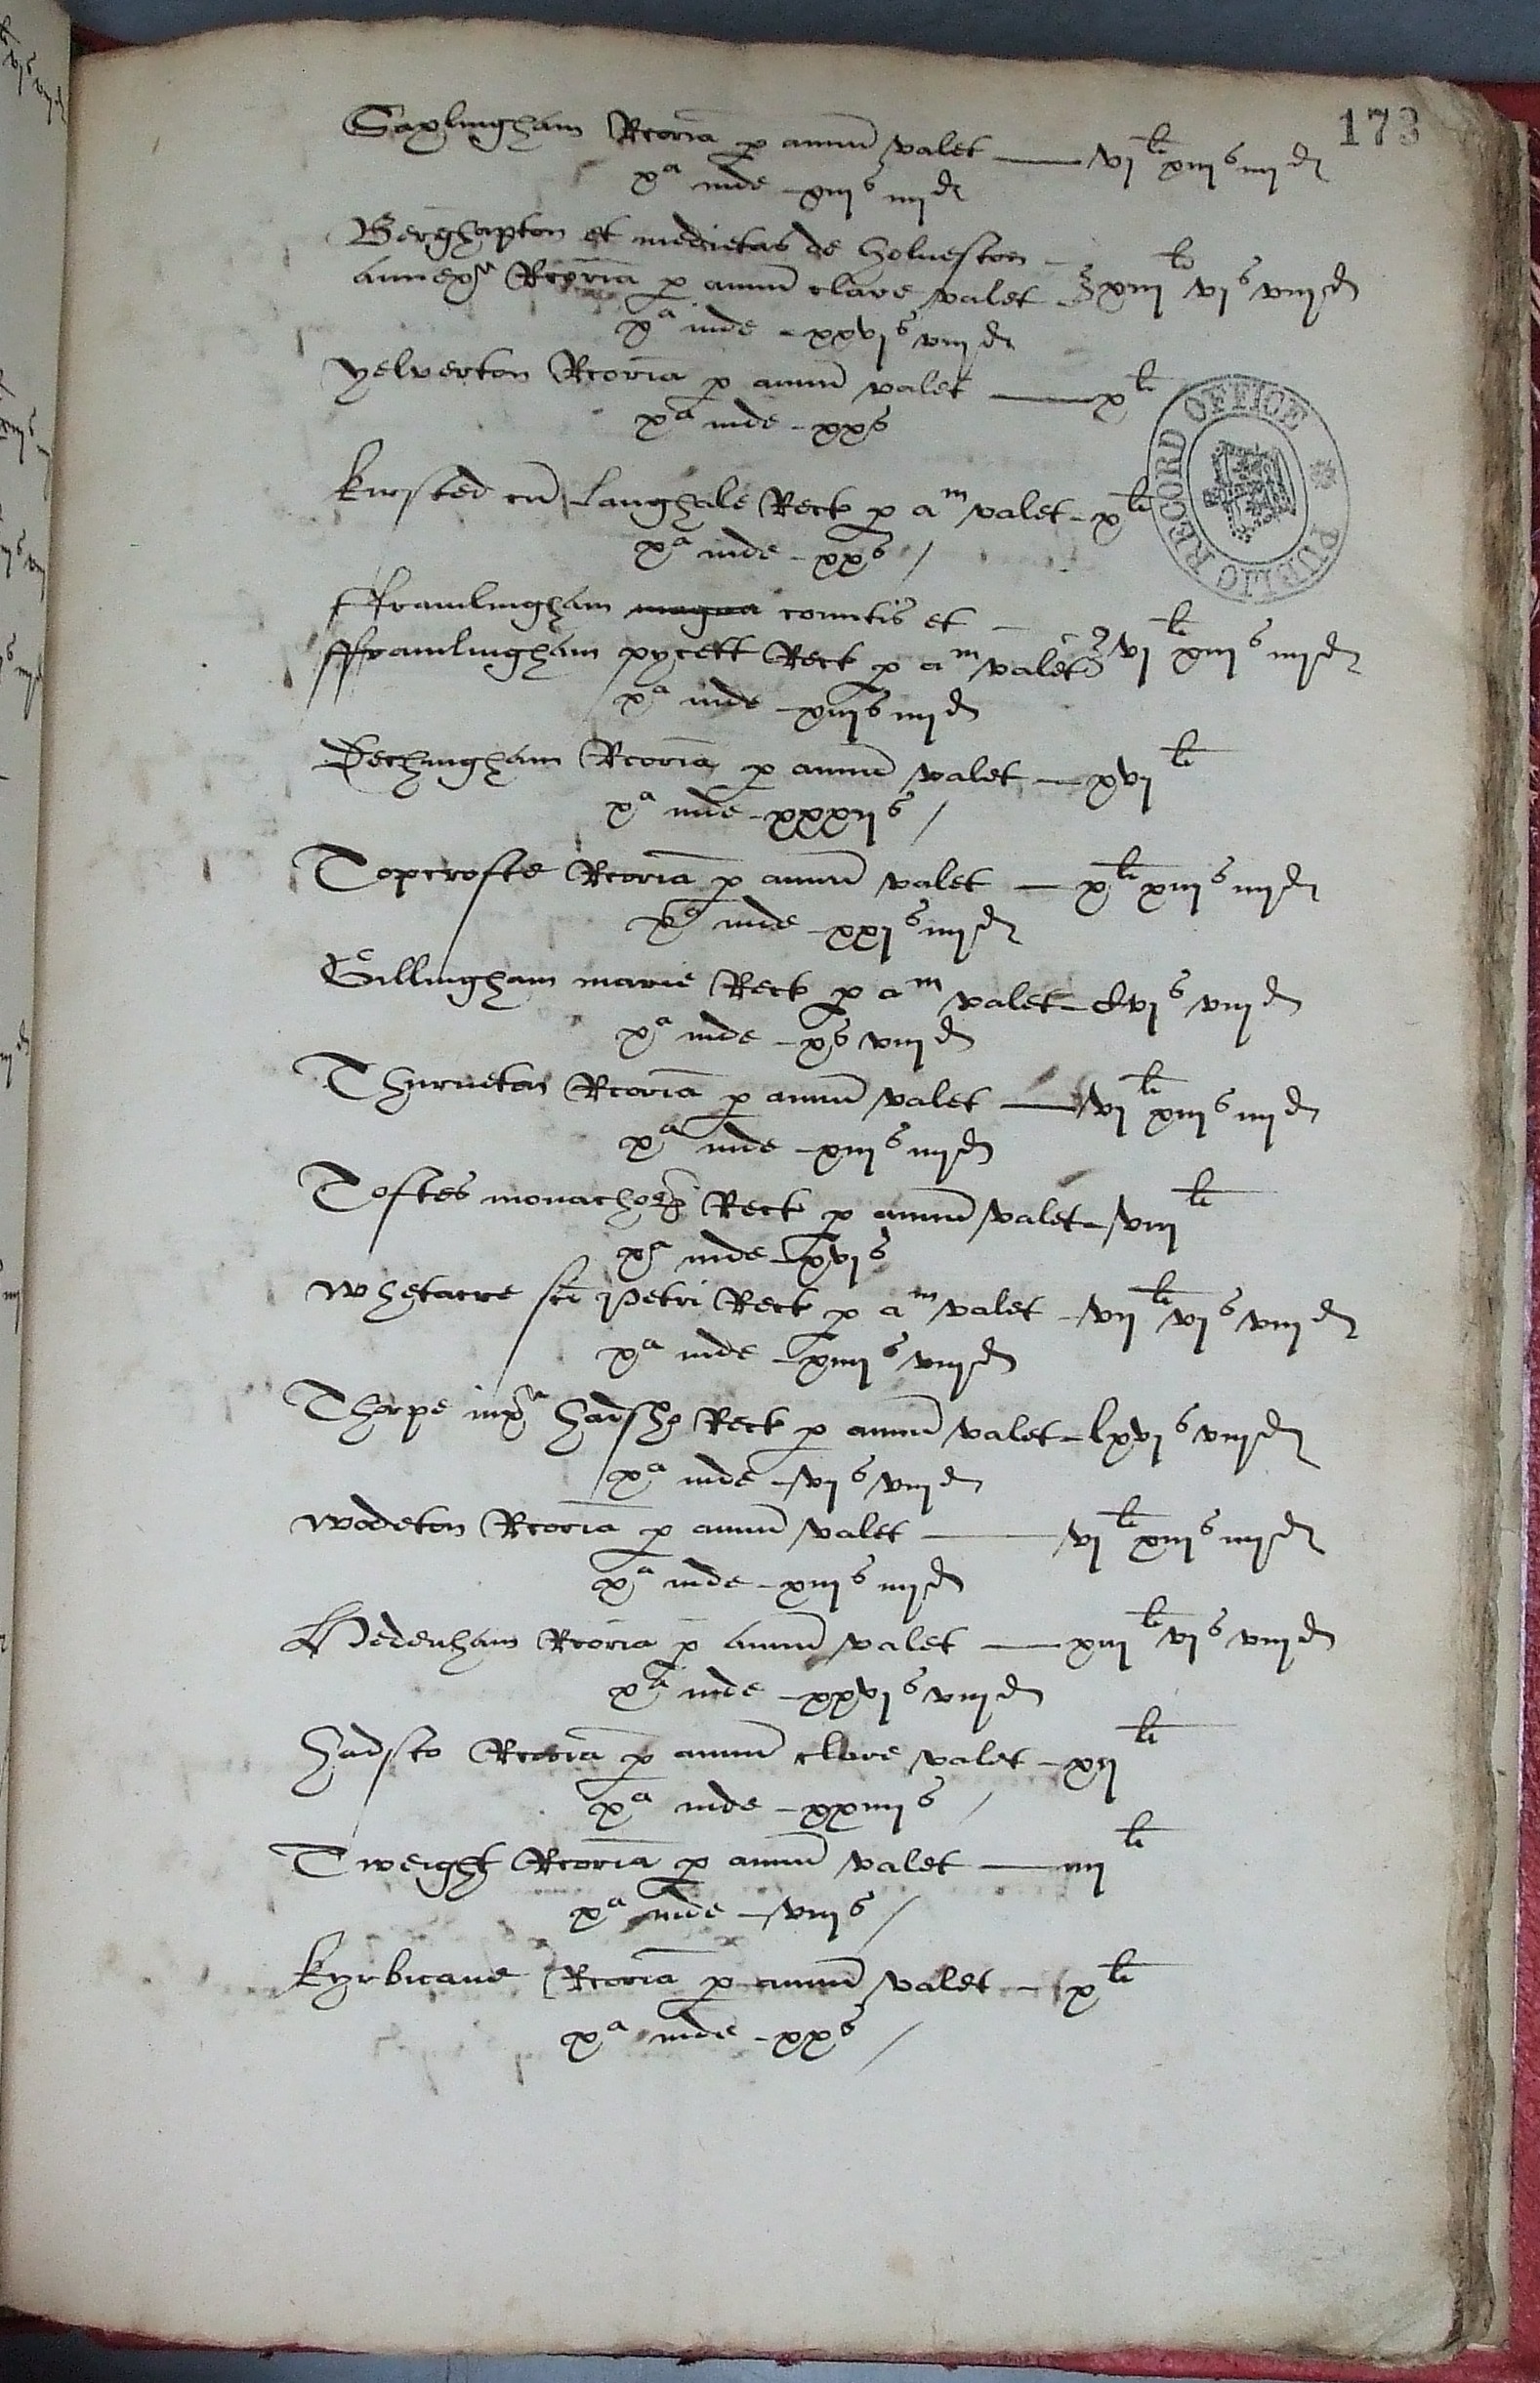 173
Saxlingham Rcoria p annu valet — vj li xiijs iiijd
xa inde - xiijs iiijd
Berghapton et medietas de holueston -
annexa Rcoria p annu clare valet - xiij li vjs viijd
xa inde - xxvjs viijd
yelverton Rcoria p annu valet — x li
xa inde - xxs
kirsted cu Langhale Rect p am valet - x li
xa inde - xxs /
fframlingham magna comitis et -
fframlingham pycett Rect p am valet vj li xiijs iiijd
xa inde - xiijs iiijd
Dechingham Rcoria p annu valet - xvj li
xa inde - xxxijs /
Topcrofte Rcoria p annu valet — x li xiijs iiijd
xa inde - xxjs iiijd
Gillingham marie Rect p am valet - cvjs viijd
xa inde - xs viijd
Thurneton Rcoria p annu valet — vj li xiijs iiijd
xa inde - xiijs iiijd
Toftes monachor Rect p annu valet - viij li
xa inde - xvjs
Whetacre sci Petri Rect p am valet - vij li vjs viijd
xa inde - xiiijs viijd
Thorpe iuxa hadsho Rect p annu valet - lxvjs viijd
xa inde - vjs viijd
Wodeton Rcoria p annu valet — vj li xiijs iiijd
xa inde - xiijs iiijd
Hedenham Rcoria p annu valet — xiij li vjs viijd
xa inde - xxvjs viijd
hadsco Rcoria p annu clare valet - xij li
xa inde - xxiiijs /
Tweight Rcoria p annu valet — iiij li
xa inde - viijs /
kyrbicane Rcoria p annu valet - x li
xa inde - xxs /
PUBLIC RECORD OFFICE